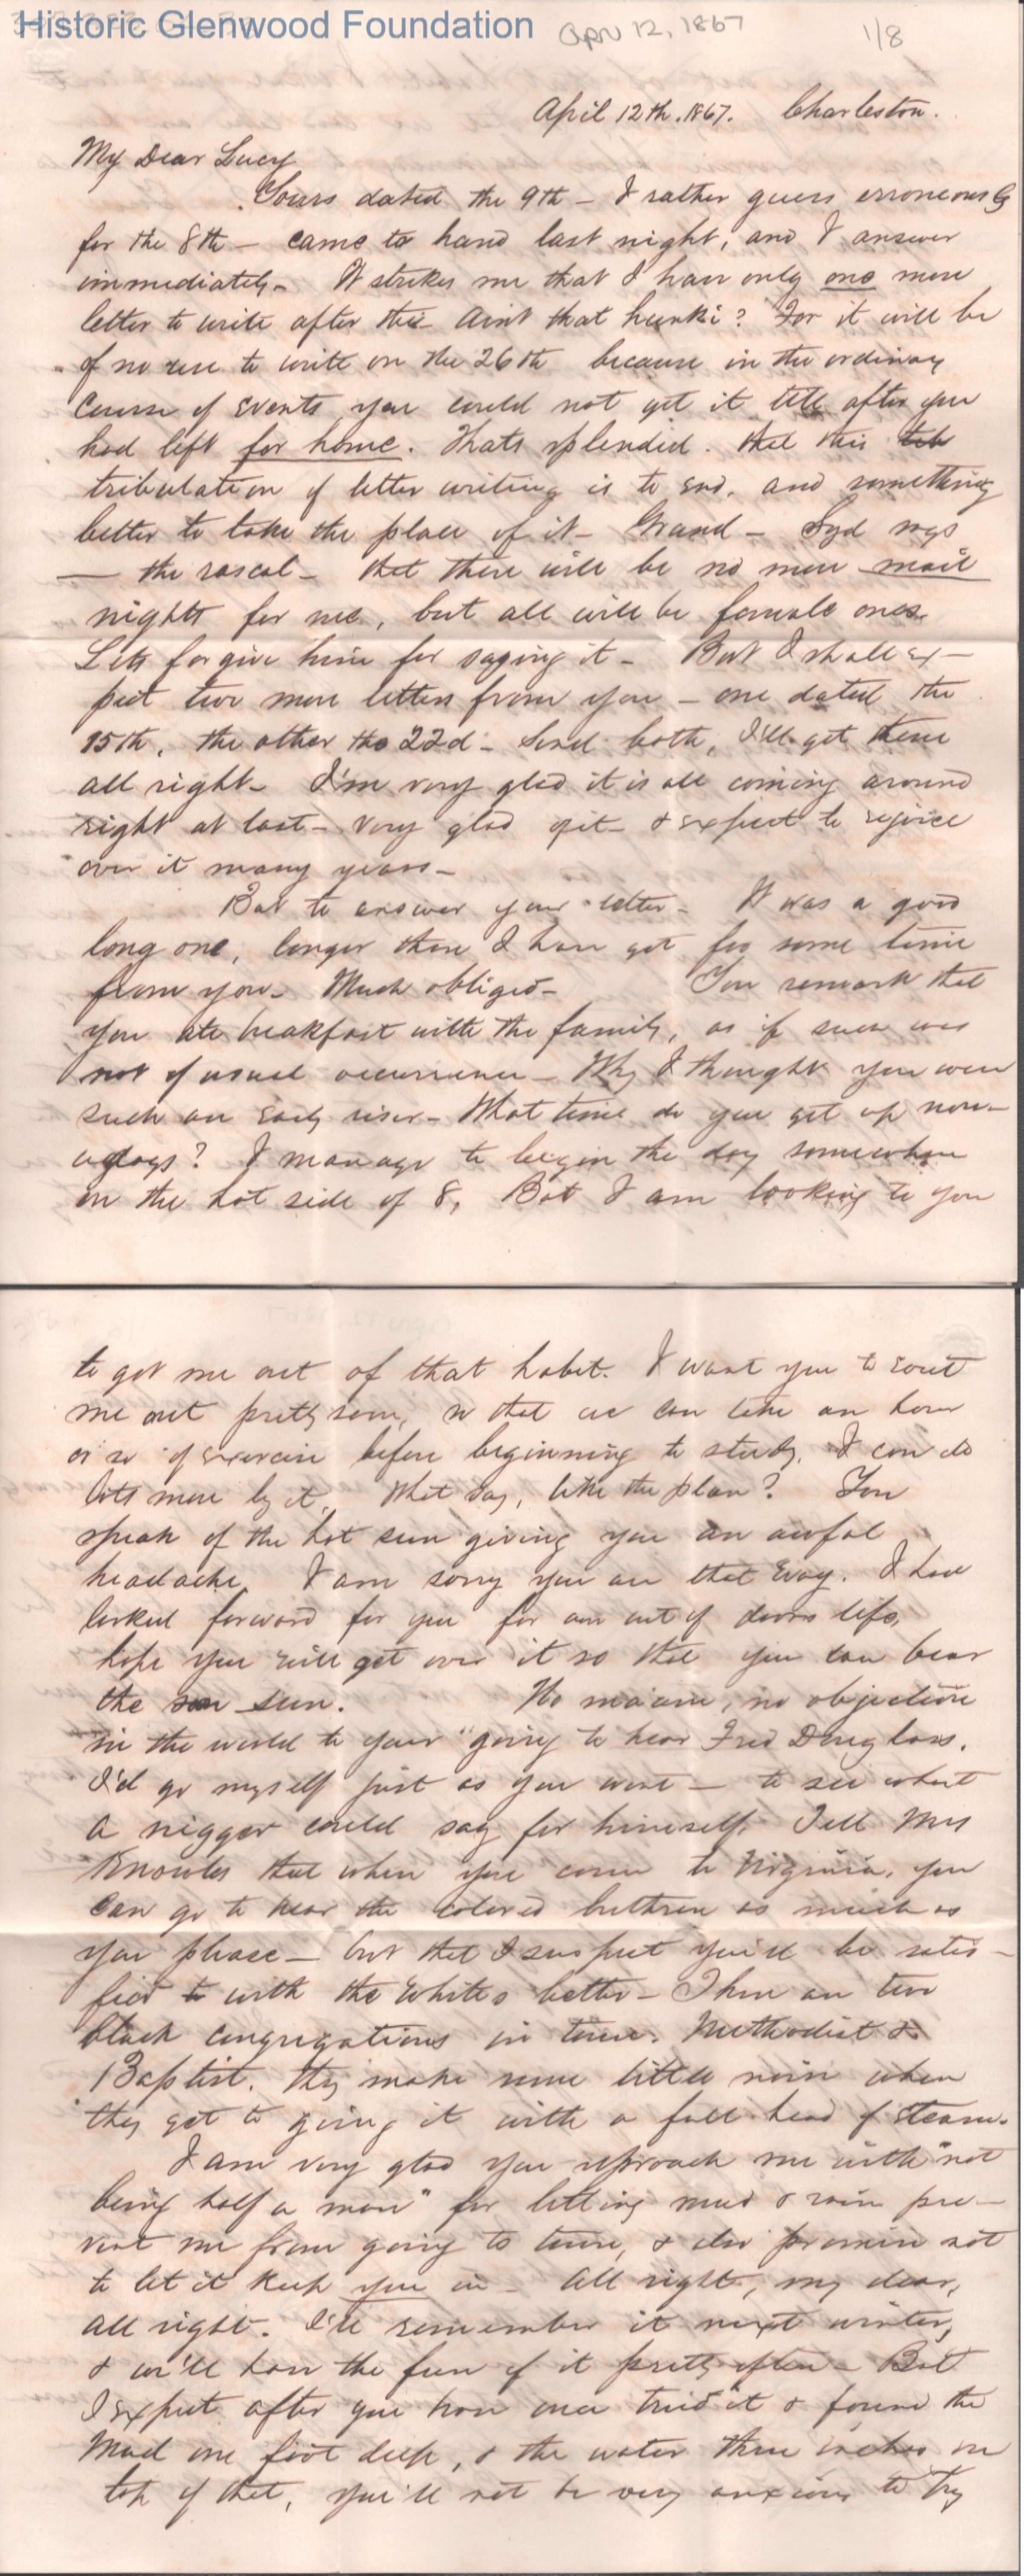 Historic Glenwood Foundation
Apr 12, 1867
1/8
April 12th. 1867. Charleston.
My Dear Lucy
Yours dated the 9th – I rather guess erroneously
for the 8th – came to hand last night, and I answer
immediately – It strikes me that I have only one more
letter to write after this – Aint that hunki? For it will be
of no use to write on the 26th because in the ordinary
course of events you could not get it till after you
had left for home. Thats splendid. that this
tribulation of letter writing is to end, and something
better to take the place of it – Grand – Syd says
— the rascal – that there will be no more mail
nights for me, but all will be female ones.
Lets forgive him for saying it – But I shall ex–
pect two more letters from you – one dated the
15th, the other the 22d – Send both, I'll get them
all right – I'm very glad it is all coming around
right at last – very glad of it – & expect to rejoice
over it many years –
But to answer your letter – It was a good
long one, longer than I have got for some time
from you – Much obliged – You remark that
you ate breakfast with the family, as if such was
not of usual occurrence – Why I thought you were
such an early riser – What time do you get up now–
adays? I manage to begin the day somewhere
on the hot side of 8, But I am looking to you
to get me out of that habit. I want you to rout
me out pretty soon, so that we can take an hour
or so of exercise before beginning to study. I can do
lots more by it. What say, like the plan? You
speak of the hot sun giving you an awful
headache. I am sorry you are that way. I have
looked forward for you for an out of doors life,
hope you will get over it so that you can bear
the sun. No ma'am, no objection
in the world to your going to hear Fred Douglass.
I'd go myself just as you went – to see what
a nigger could say for himself. Tell Mrs
Knowles that when you come to Virginia, you
can go to hear the colored brethren as much as
you please – but that I suspect you'll be satis–
fied with the whites better – There are two
black congregations in town. Methodist &
Baptist. They make some little noise when
they get to going it with a full head of steam.
I am very glad you reproach me with "not
being half a man" for letting mud & rain pre–
vent me from going to town, & also promise not
to let it keep you in – All right, my dear,
all right. I'll remember it next winter,
& we'll have the fun of it pretty often – But
I expect after you have once tried it & found the
mud one foot deep, & the water three inches on
top of that, you'll not be very anxious to try